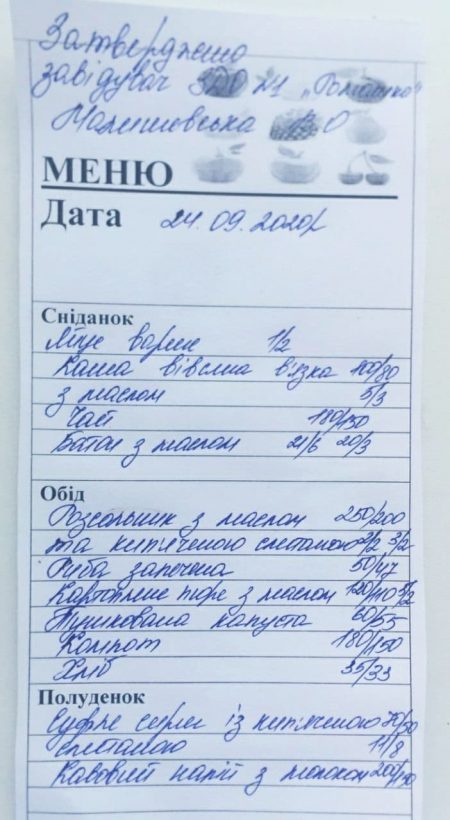 Затверджено
завідувач ЗДО №1 „Ромашка"
О
МЕНЮ
Дата 24.09.2020р
Сніданок
Яйце варене 1/2
Каша вівсяна в'язка 100/80
з маслом 5/3
Чай 180/150
Батон з маслом 21/6 20/3
Обід
Розсольник з маслом 250/200
та кип'яченою сметаною 3/2
Риба запечена 50/47
Картопляне пюре з маслом
Тушкована капуста 60/55
Компот 180/150
Хліб 35/33
Полуденок
Суфле сирне із кип'яченою
сметаною 11/8
Кавовий напій з молоком 200/150